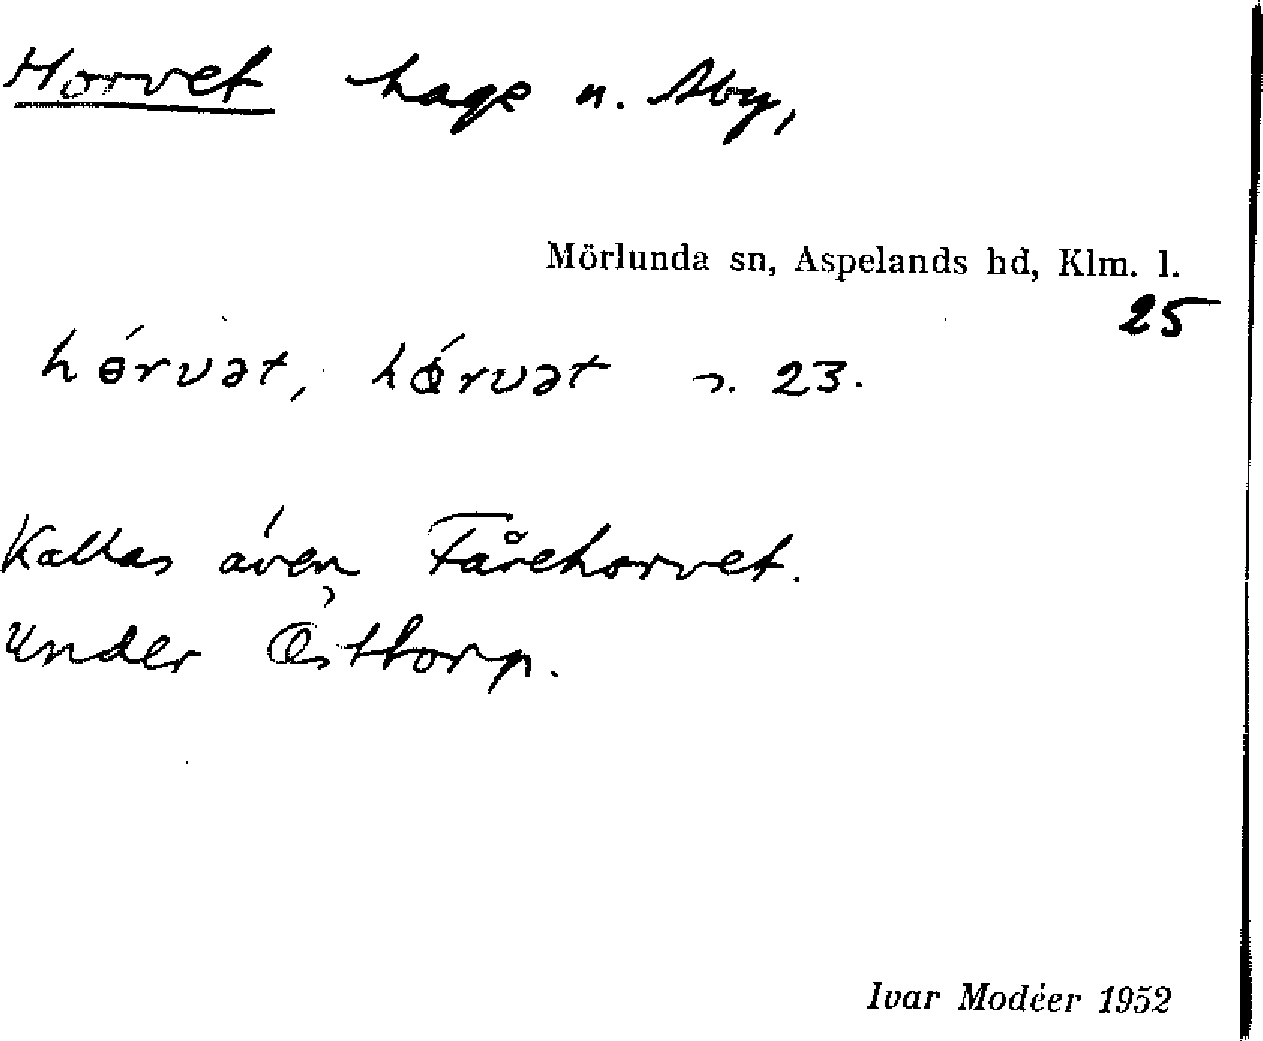 Horvet hage n. Åby,
Mörlunda sn, Aspelands hd, Klm. l.
25
hɵ́rvət, hǿrvət n. 23.
Kallas även Fårehorvet.
Under Östtorp.
Ivar Modéer 1952